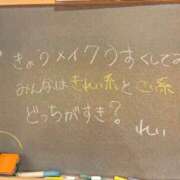 きょうメイクうすくしてる
みんなはきれい系とこい系
どっちがすき?
れい